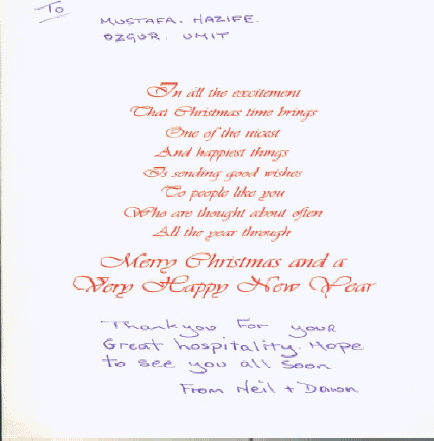 To
MUSTAFA. HAZIFE.
OZGUR. UMIT
In all the excitement
That Christmas time brings
One of the nicest
And happiest things
Is sending good wishes
To people like you
Who are thought about often
All the year through
Merry Christmas and a
Very Happy New Year
Thankyou For your
Great hospitality. Hope
to see you all soon
From Neil + Dawn